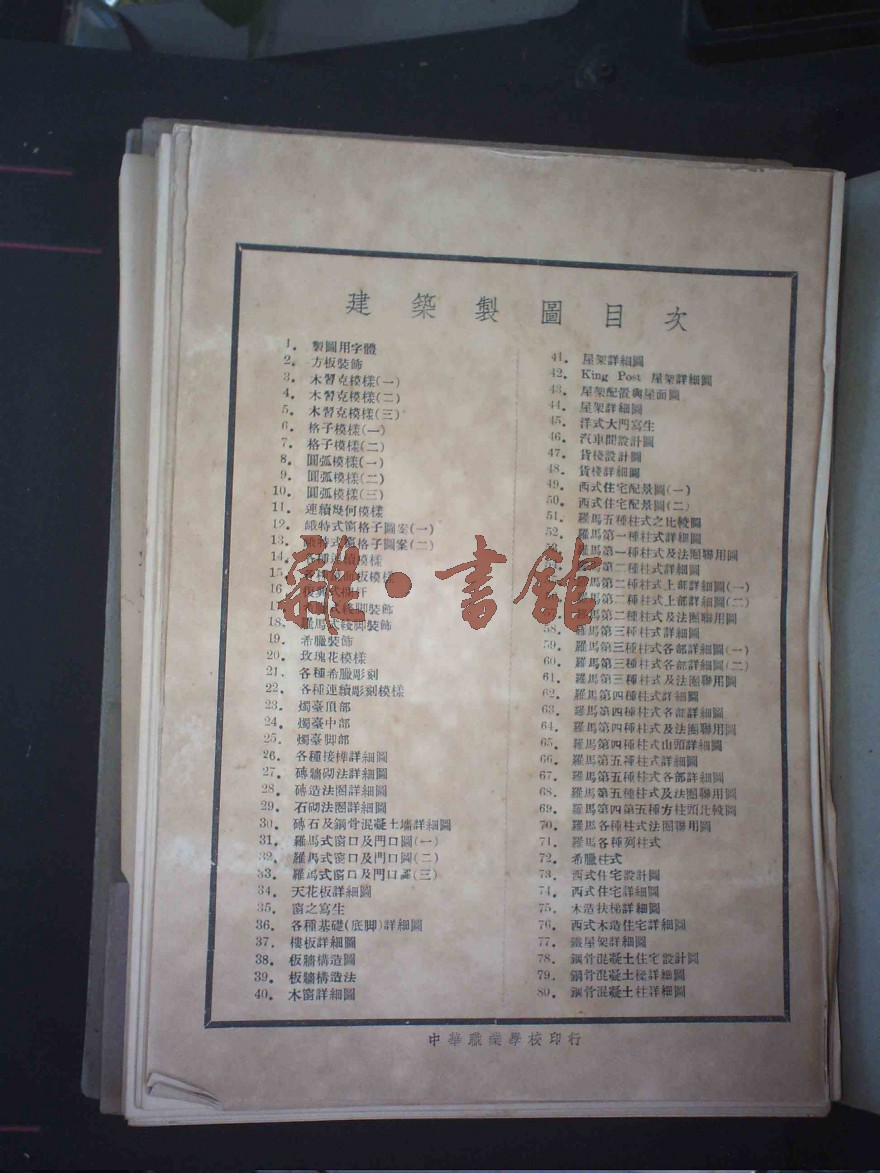 建築製圖目次
1. 製圖用字體
2. 方板裝飾
3. 木習克模樣(一)
4. 木習克模樣(二)
5. 木習克模樣(三)
6. 格子模樣(一)
7. 格子模樣(二)
8. 圓弧模樣(一)
9. 圓弧模樣(二)
10. 圓弧模樣(三)
11. 連續幾何模樣
12. 峨特式窗格子圖案(一)
13. 峨特式窗格子圖案(二)
14. 各種連續模樣
15. 各種
18. 羅馬式綫脚裝飾
19. 希臘裝飾
20. 玫瑰花模樣
21. 各種希臘彫刻
22. 各種連續彫刻模樣
23. 燭臺頂部
24. 燭臺中部
25. 燭臺脚部
26. 各種接榫詳細圖
27. 磚牆砌法詳細圖
28. 磚造法圈詳細圖
29. 石砌法圈詳細圖
30. 磚石及鋼骨混凝土墻詳細圖
31. 羅馬式窗口及門口圖(一)
32. 羅馬式窗口及門口圖(二)
33. 羅馬式窗口及門口圖(三)
34. 天花板詳細圖
35. 窗之寫生
36. 各種基礎(底脚)詳細圖
37. 樓板詳細圖
38. 板牆構造圖
39. 板牆構造法
40. 木窗詳細圖
41. 屋架詳細圖
42. King Post 屋架詳細圖
43. 屋架配置與屋面圖
44. 屋架詳細圖
45. 洋式大門寫生
46. 汽車間設計圖
47. 貨棧設計圖
48. 貨棧詳細圖
49. 西式住宅配景圖(一)
50. 西式住宅配景圖(二)
51. 羅馬五種柱式之比較圖
52. 羅馬第一種柱式詳細圖
53. 羅馬第一種柱式及法圈聯用圖
第二種柱式詳細圖
馬第二種柱式上部詳細圖(一)
馬第二種柱式上部詳細圖(二)
57. 羅馬第二種柱式及法圈聯用圖
58. 羅馬第三種柱式詳細圖
59. 羅馬第三種柱式各部詳細圖(一)
60. 羅馬第三種柱式各部詳細圖(二)
61. 羅馬第三種柱式及法圈聯用圖
62. 羅馬第四種柱式詳細圖
63. 羅馬第四種柱式各部詳細圖
64. 羅馬第四種柱式及法圈聯用圖
65. 羅馬第四種柱式山頭詳細圖
66. 羅馬第五種柱式詳細圖
67. 羅馬第五種柱式各部詳細圖
68. 羅馬第五種柱式及法圈聯用圖
69. 羅馬第四第五種方柱頭比較圖
70. 羅馬各種柱式法圈聯用圖
71. 羅馬各種列柱式
72. 希臘柱式
73. 西式住宅設計圖
74. 西式住宅詳細圖
75. 木造扶梯詳細圖
76. 西式木造住宅詳細圖
77. 鐵屋架詳細圖
78. 鋼骨混凝土住宅設計圖
79. 鋼骨混凝土樓詳細圖
80. 鋼骨混凝土柱詳細圖
中華職業學校印行
雜·書館